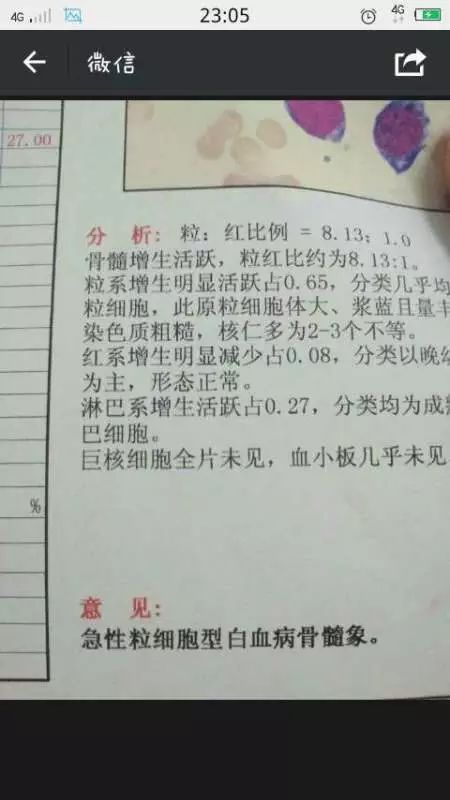 4G 23:05 4G
微信
27.00
分 析: 粒: 红比例 = 8.13: 1.0
骨髓增生活跃，粒红比约为8.13:1。
粒系增生明显活跃占0.65，分类几乎均
粒细胞，此原粒细胞体大、浆蓝且量丰
染色质粗糙，核仁多为2-3个不等。
红系增生明显减少占0.08，分类以晚幼
为主，形态正常。
淋巴系增生活跃占0.27，分类均为成
巴细胞。
巨核细胞全片未见，血小板几乎未见
%
意 见:
急性粒细胞型白血病骨髓象。